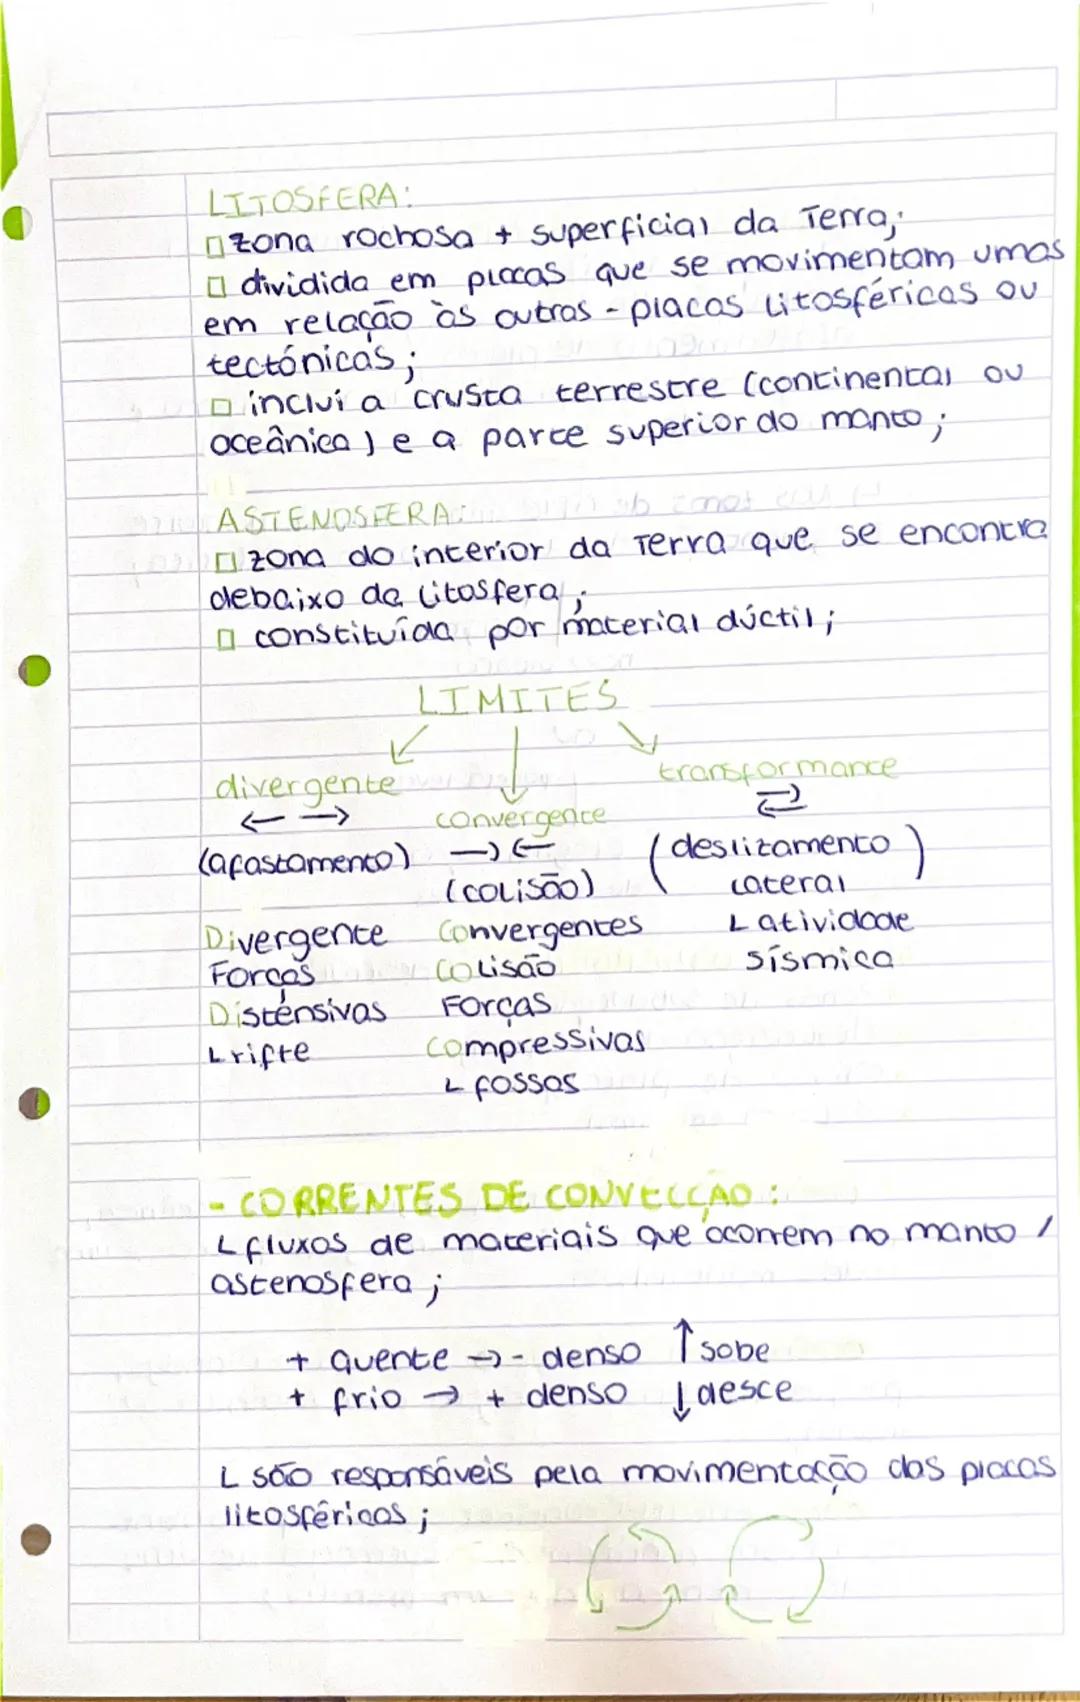 LITOSFERA:
□ zona rochosa + superficial da Terra;
□ dividida em placas que se movimentam umas
em relação às outras - placas litosféricas ou
tectónicas;
□ inclui a crusta terrestre (continental ou
oceânica) e a parte superior do manto;
ASTENOSFERA:
□ zona do interior da Terra que se encontra
debaixo da litosfera;
□ constituída por material dúctil;
LIMITES
divergente
← →
(afastamento)
Divergente
Forças
Distensivas
L rifte
convergente
→ ←
(colisão)
Convergentes
Colisão
Forças
Compressivas
L fossas
transformante
⇄
(deslizamento
lateral)
L atividade
sísmica
- CORRENTES DE CONVECÇÃO:
L fluxos de materiais que ocorrem no manto /
astenosfera;
+ quente → - denso ↑ sobe
+ frio → + denso ↓ desce
L são responsáveis pela movimentação das placas
litosféricas;